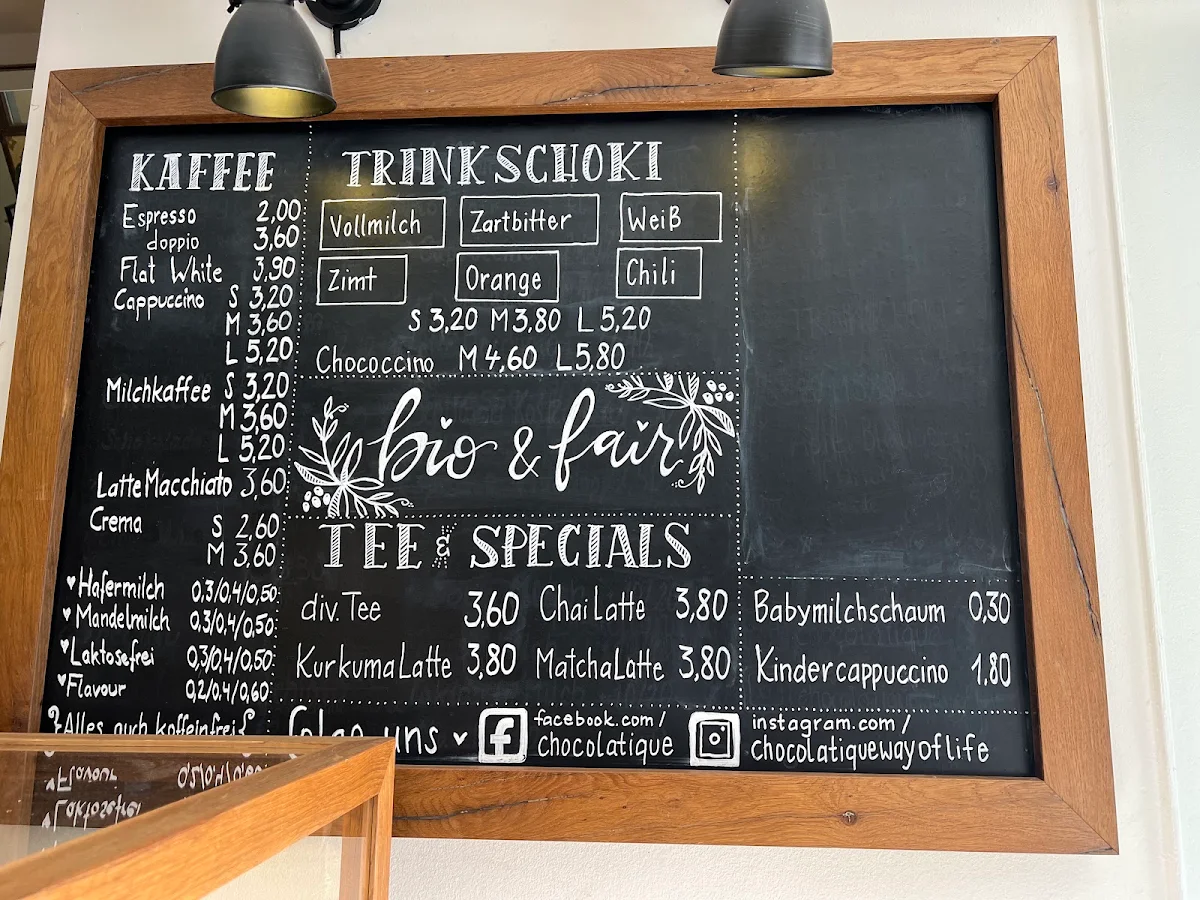 KAFFEE
Espresso 2,00
doppio 3,60
Flat White 3,90
Cappuccino S 3,20
M 3,60
L 5,20
Milchkaffee S 3,20
M 3,60
L 5,20
Latte Macchiato 3,60
Crema S 2,60
M 3,60
♥Hafermilch 0,3/0,4/0,50
♥Mandelmilch 0,3/0,4/0,50
♥Laktosefrei 0,3/0,4/0,50
♥Flavour 0,2/0,4/0,60
Alles auch koffeinfrei
TRINKSCHOKI
Vollmilch Zartbitter Weiß
Zimt Orange Chili
S 3,20 M 3,80 L 5,20
Chococcino M 4,60 L 5,80
bio & fair
TEE & SPECIALS
div. Tee 3,60 Chai Latte 3,80
Kurkuma Latte 3,80 Matcha Latte 3,80
Babymilchschaum 0,30
Kindercappuccino 1,80
folge uns ♥
facebook.com/
chocolatique
instagram.com/
chocolatiquewayoflife
Flavour
Laktosefrei